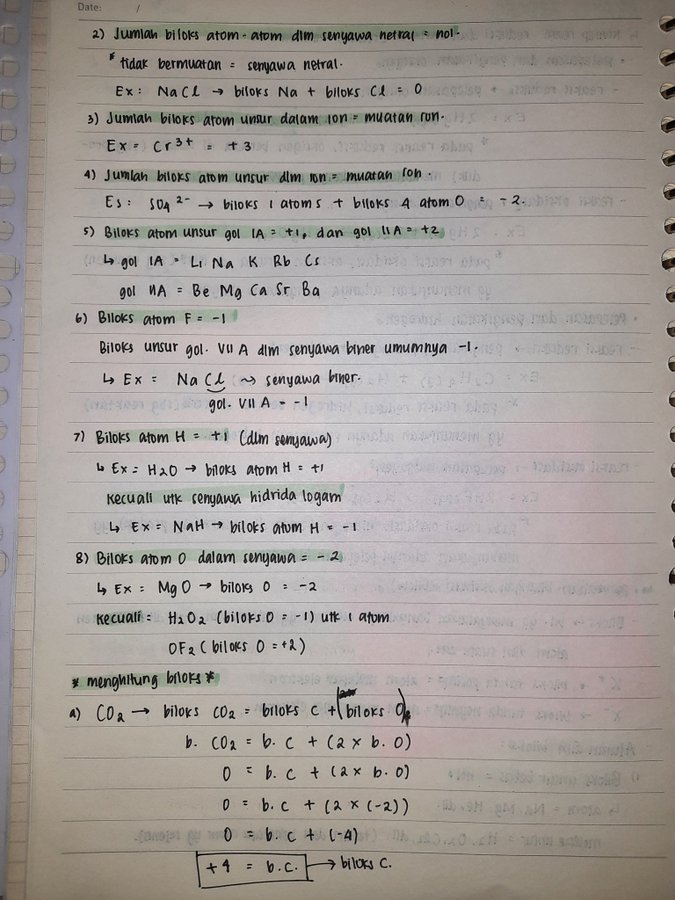 Date: /
2) Jumlah biloks atom-atom dlm senyawa netral = nol.
* tidak bermuatan = senyawa netral.
Ex: NaCl → biloks Na + biloks Cl = 0
3) Jumlah biloks atom unsur dalam Ion = muatan Ion.
Ex = Cr³⁺ = +3
4) Jumlah biloks atom unsur dlm Ion = muatan Ion.
Es: SO₄²⁻ → biloks 1 atom S + biloks 4 atom O = -2.
5) Biloks atom unsur gol IA = +1, dan gol IIA = +2
↳ gol IA = Li Na K Rb Cs
gol IIA = Be Mg Ca Sr Ba
6) Biloks atom F = -1
Biloks unsur gol. VII A dlm senyawa biner umumnya -1.
↳ Ex = NaCl ~> senyawa biner.
gol. VII A = -1
7) Biloks atom H = +1 (dlm senyawa)
↳ Ex = H₂O → biloks atom H = +1
kecuali utk senyawa hidrida logam
↳ Ex = NaH → biloks atom H = -1
8) Biloks atom O dalam senyawa = -2
↳ Ex = MgO → biloks O = -2
kecuali = H₂O₂ (biloks O = -1) utk 1 atom
OF₂ (biloks O = +2)
* menghitung biloks *
a) CO₂ → biloks CO₂ = biloks C + (biloks O)
b. CO₂ = b. C + (2 x b. O)
0 = b. C + (2 x b. O)
0 = b. C + (2 x (-2))
0 = b. C + (-4)
+4 = b.C. → biloks C.